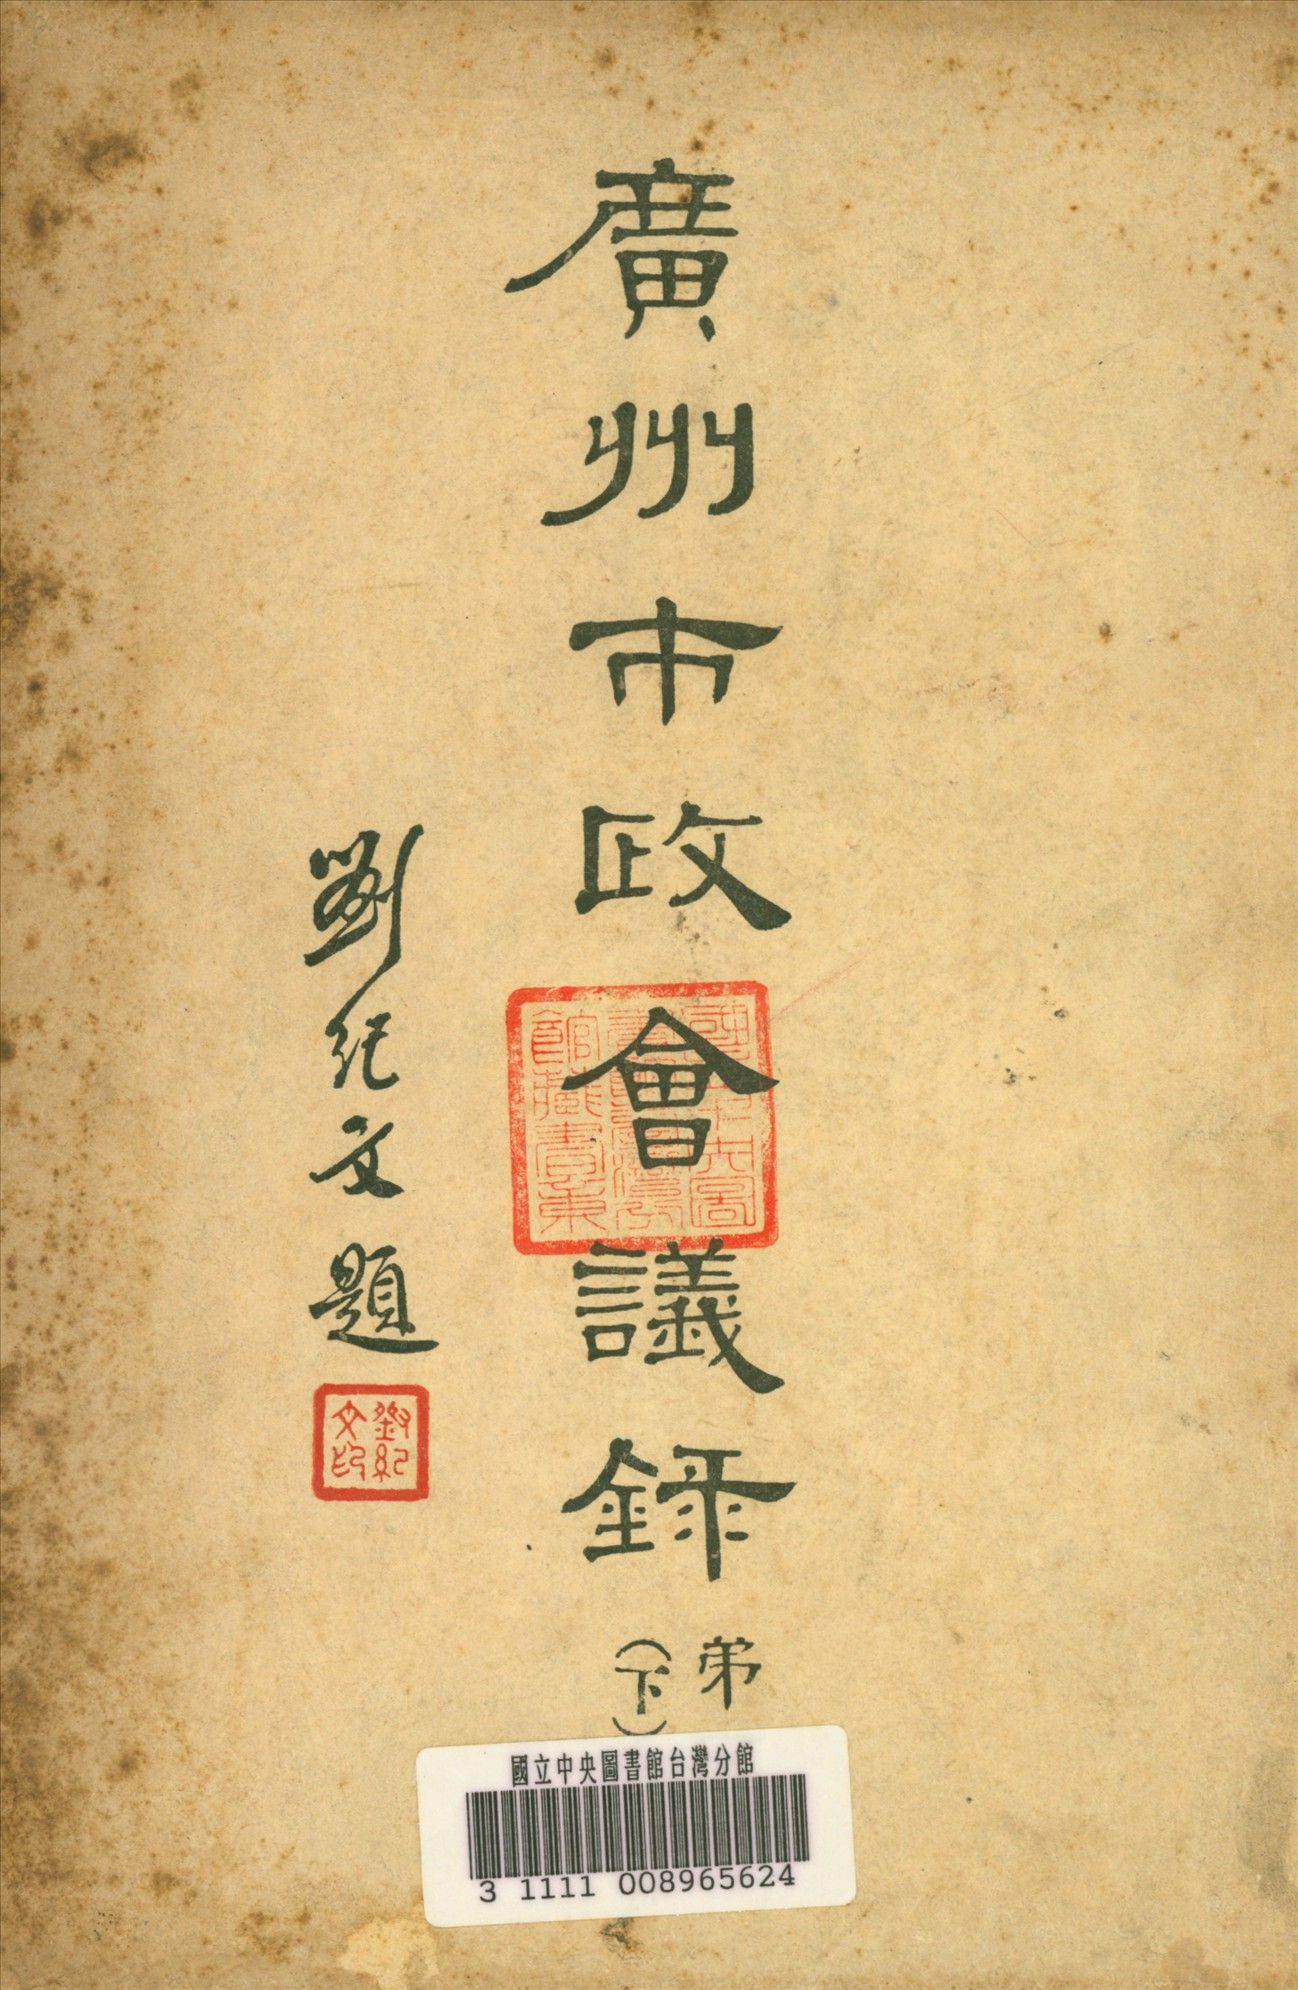 廣州市政會議錄
弟
（下）
劉紀文題
劉紀文印
國立中央圖書館台灣分館藏書章
國立中央圖書館台灣分館
3 1111 008965624